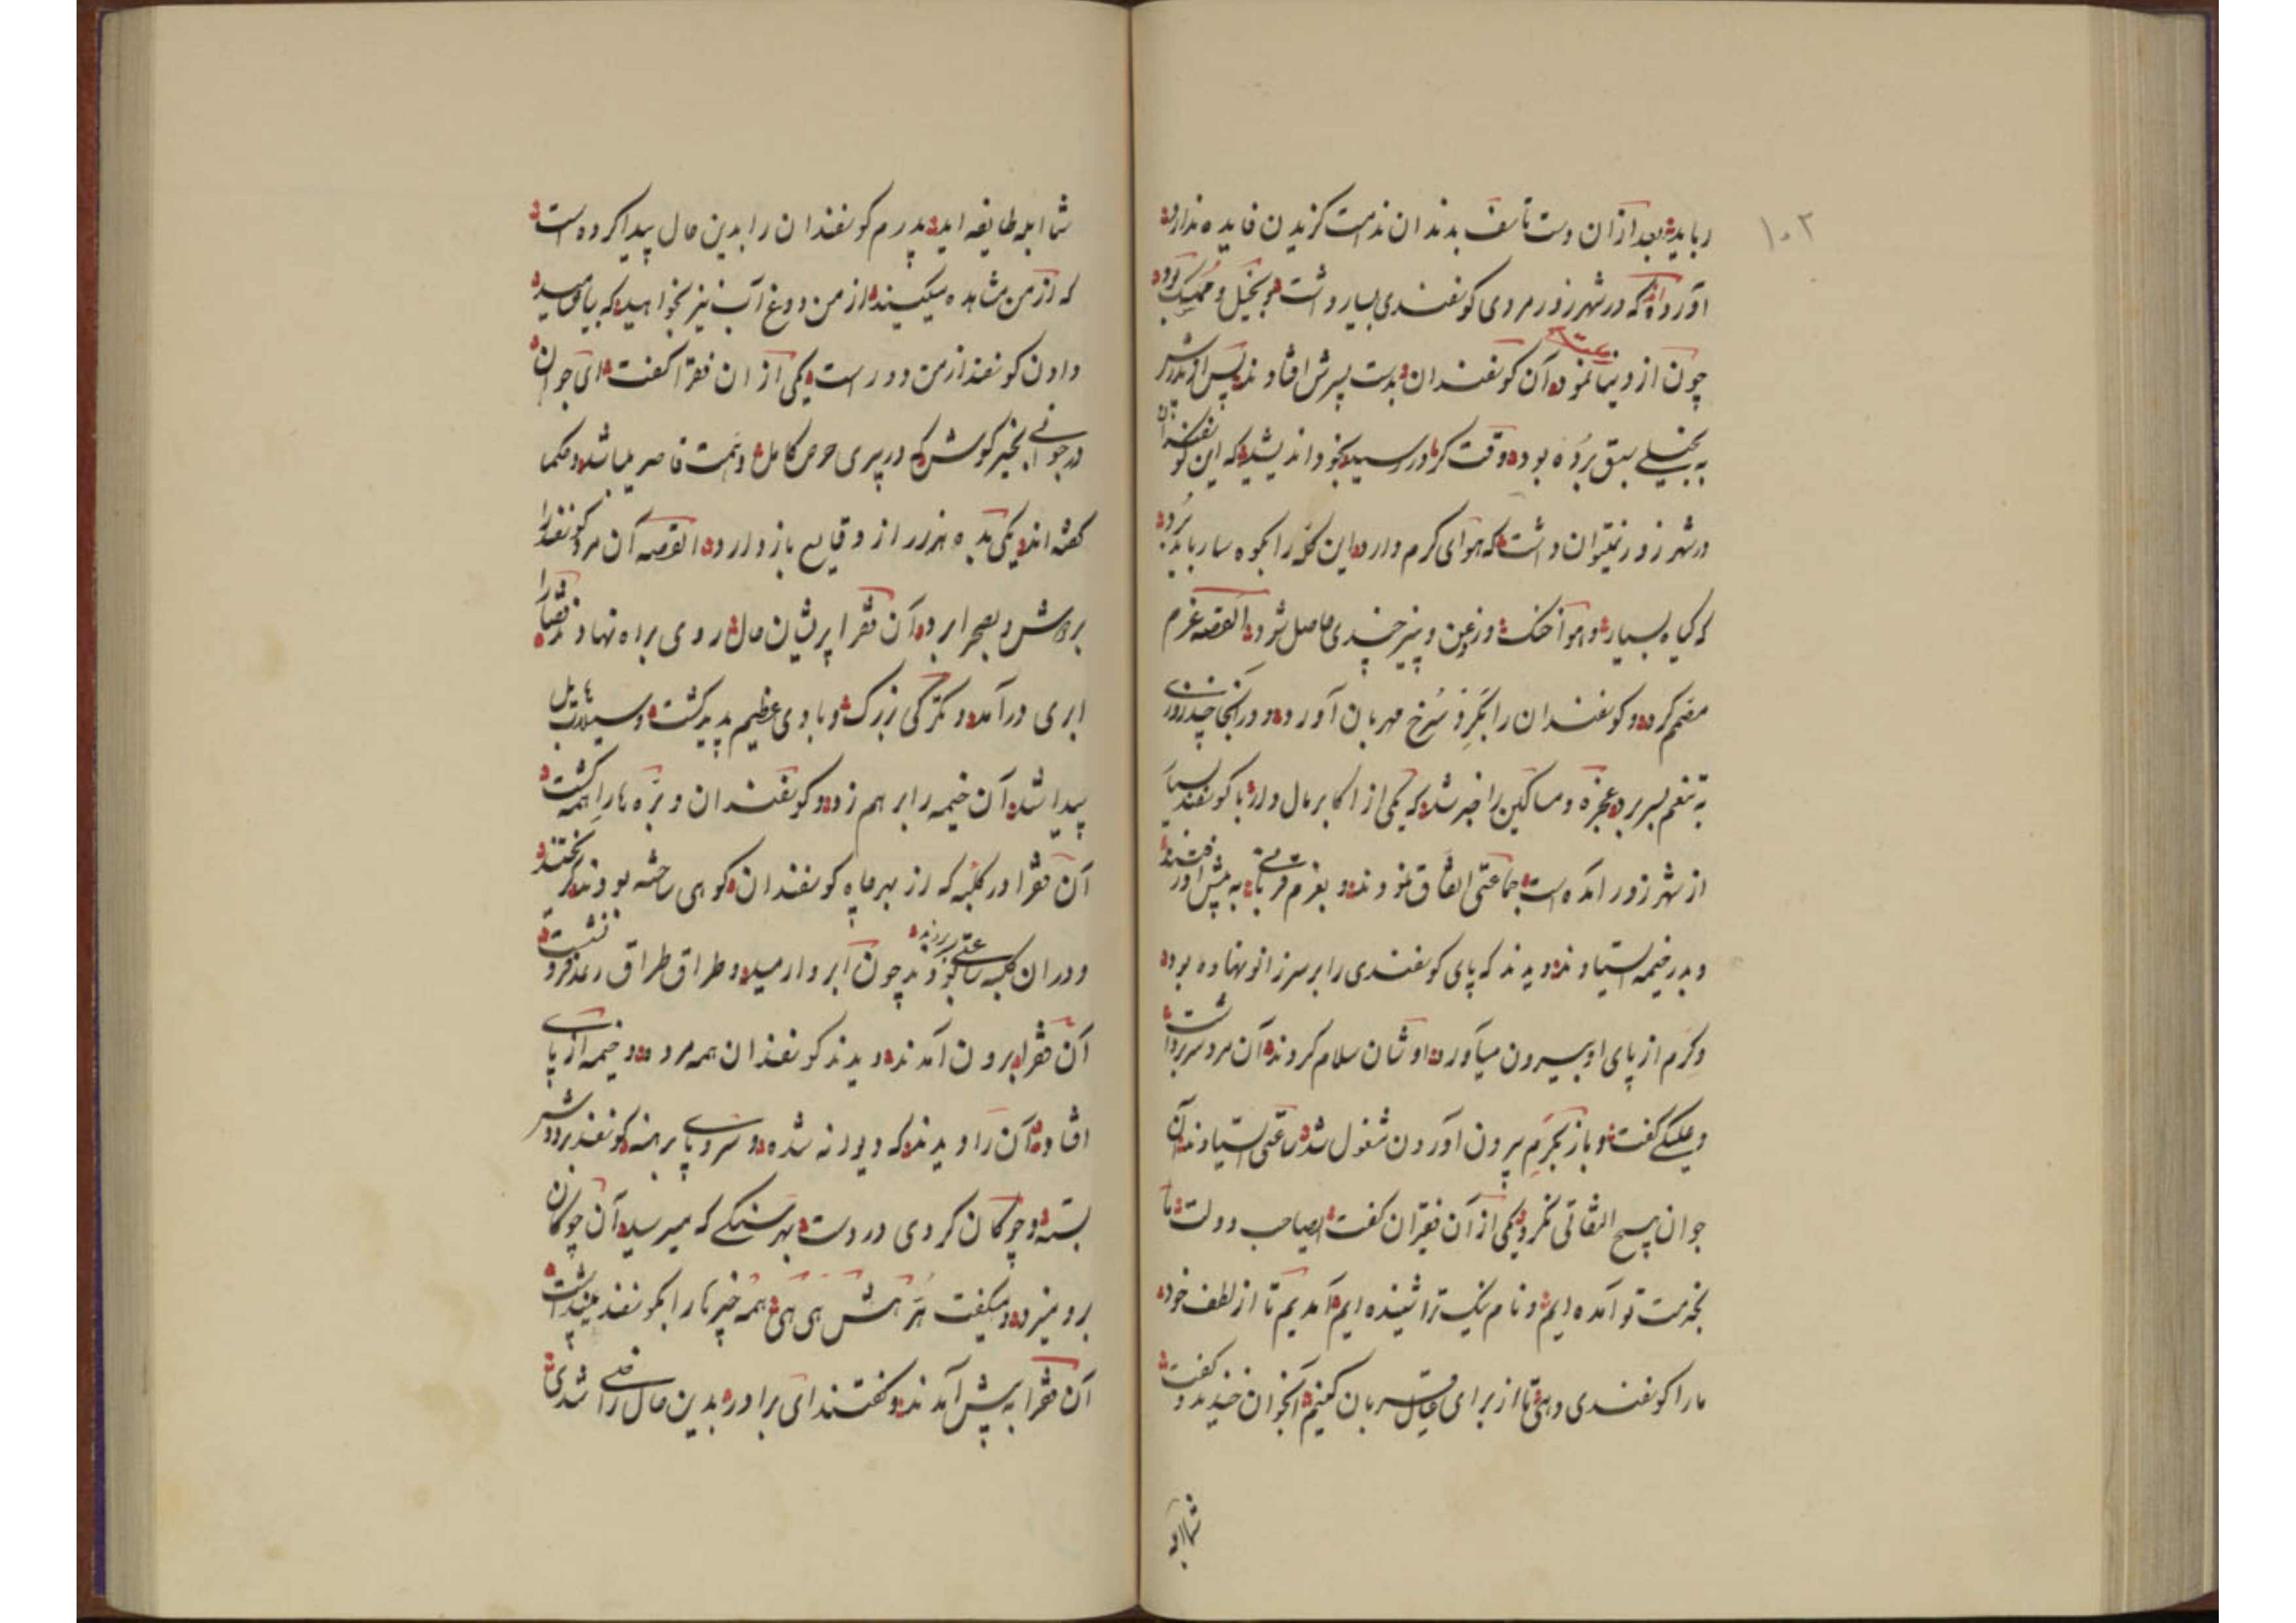 ۱۰۲
رباید بعد از آن دست تأسف بدندان ندامت گزیدن فایده ندارد
آورده‌اند که در شهر زور مردی کوسفندی بسیار داشت بخیل و ممسک بود
چون از دنیا نمود آن کوسفندان بدست پسرش افتادند پس از پدرش
به بخیلی سبق برده بود وقت کرما در رسید بخود اندیشید که این کوسفندان
در شهر زور نمیتوان داشت که هوای کرم دارد این کله را بکوه سار باید برد
که کیاه بسیار و هوا خنک و روغن و پنیر چندی حاصل شود القصه عزم
مصمم کرده و کوسفندان را بکرد سرخ مهربان آورد و در آنجا چند روزی
به تنعم بسر برد عجزه و مساکین را خبر شد که یکی از اکابر مال دار با کوسفند بسیار
از شهر زور آمده است جماعتی اتفاق نمودند و بعزم قربانی به پیش او رفتند
و بدر خیمه استادند دیدند که پای کوسفندی را بر سر زانو نهاده بود
و کرم از پای او بیرون میآورد اوشان سلام کردند آن مرد سر برداشت
و علیکی کفت و باز بکرم بیرون آوردن مشغول شد ساعتی استادند آن
جوان هیچ التفاتی نکرد یکی از آن فقیران کفت ایصاحب دولت ما
بخدمت تو آمده ایم و نام نیک ترا شنیده ایم آمدیم تا از لطف خود
ما را کوسفندی دهی تا از برای عیال قربان کنیم آنجوان خندید و کفت
شما ابله
شما ابله طایفه اید پدرم کوسفندان را بدین حال پیدا کرده است
که از من مشاهده میکنید از من دوغ آب نیز نخواهید که بیابید
دادن کوسفند از من دور است یکی از ان فقرا کفت ای جوان
در جوانی بخیر کوش که در پیری حرص کامل و همت قاصر میباشد و حکما
کفته اند یکی بده هزار از وقایع باز دارد القصه آن مرد کوسفند را
بر دوش و بصحرا برد آن فقرا پریشان حال روی براه نهادند قضا را
ابری درآمد و تکرکی بزرک و بادی عظیم پدید کشت و سیلاب هایل
پیدا شد آن خیمه را بر هم زد و کوسفندان و بره ها را همه کشت
آن فقرا در کلبه که از بهر چاه کوسفندان کوهی ساخته بودند کریختند
و در ان کلبه ساعتی بودند چون ابر وارمید و طراق طراق رعد فرو نشست
آن فقرا برون آمدند دیدند کوسفندان همه مرده و خیمه از پای
افتاده آن را دیدند که دیوانه شده و سر و پا برهنه کوسفند بر دوش
بسته و چوکان کردی در دست بهر سنکی که میرسید آن چوکان
برو میزد و میکفت هر هش هی هی همه چیز ها را کوسفند میپنداشت
آن فقرا به پیش آمدند و کفتند ای برادر بدین حال راضی شدی